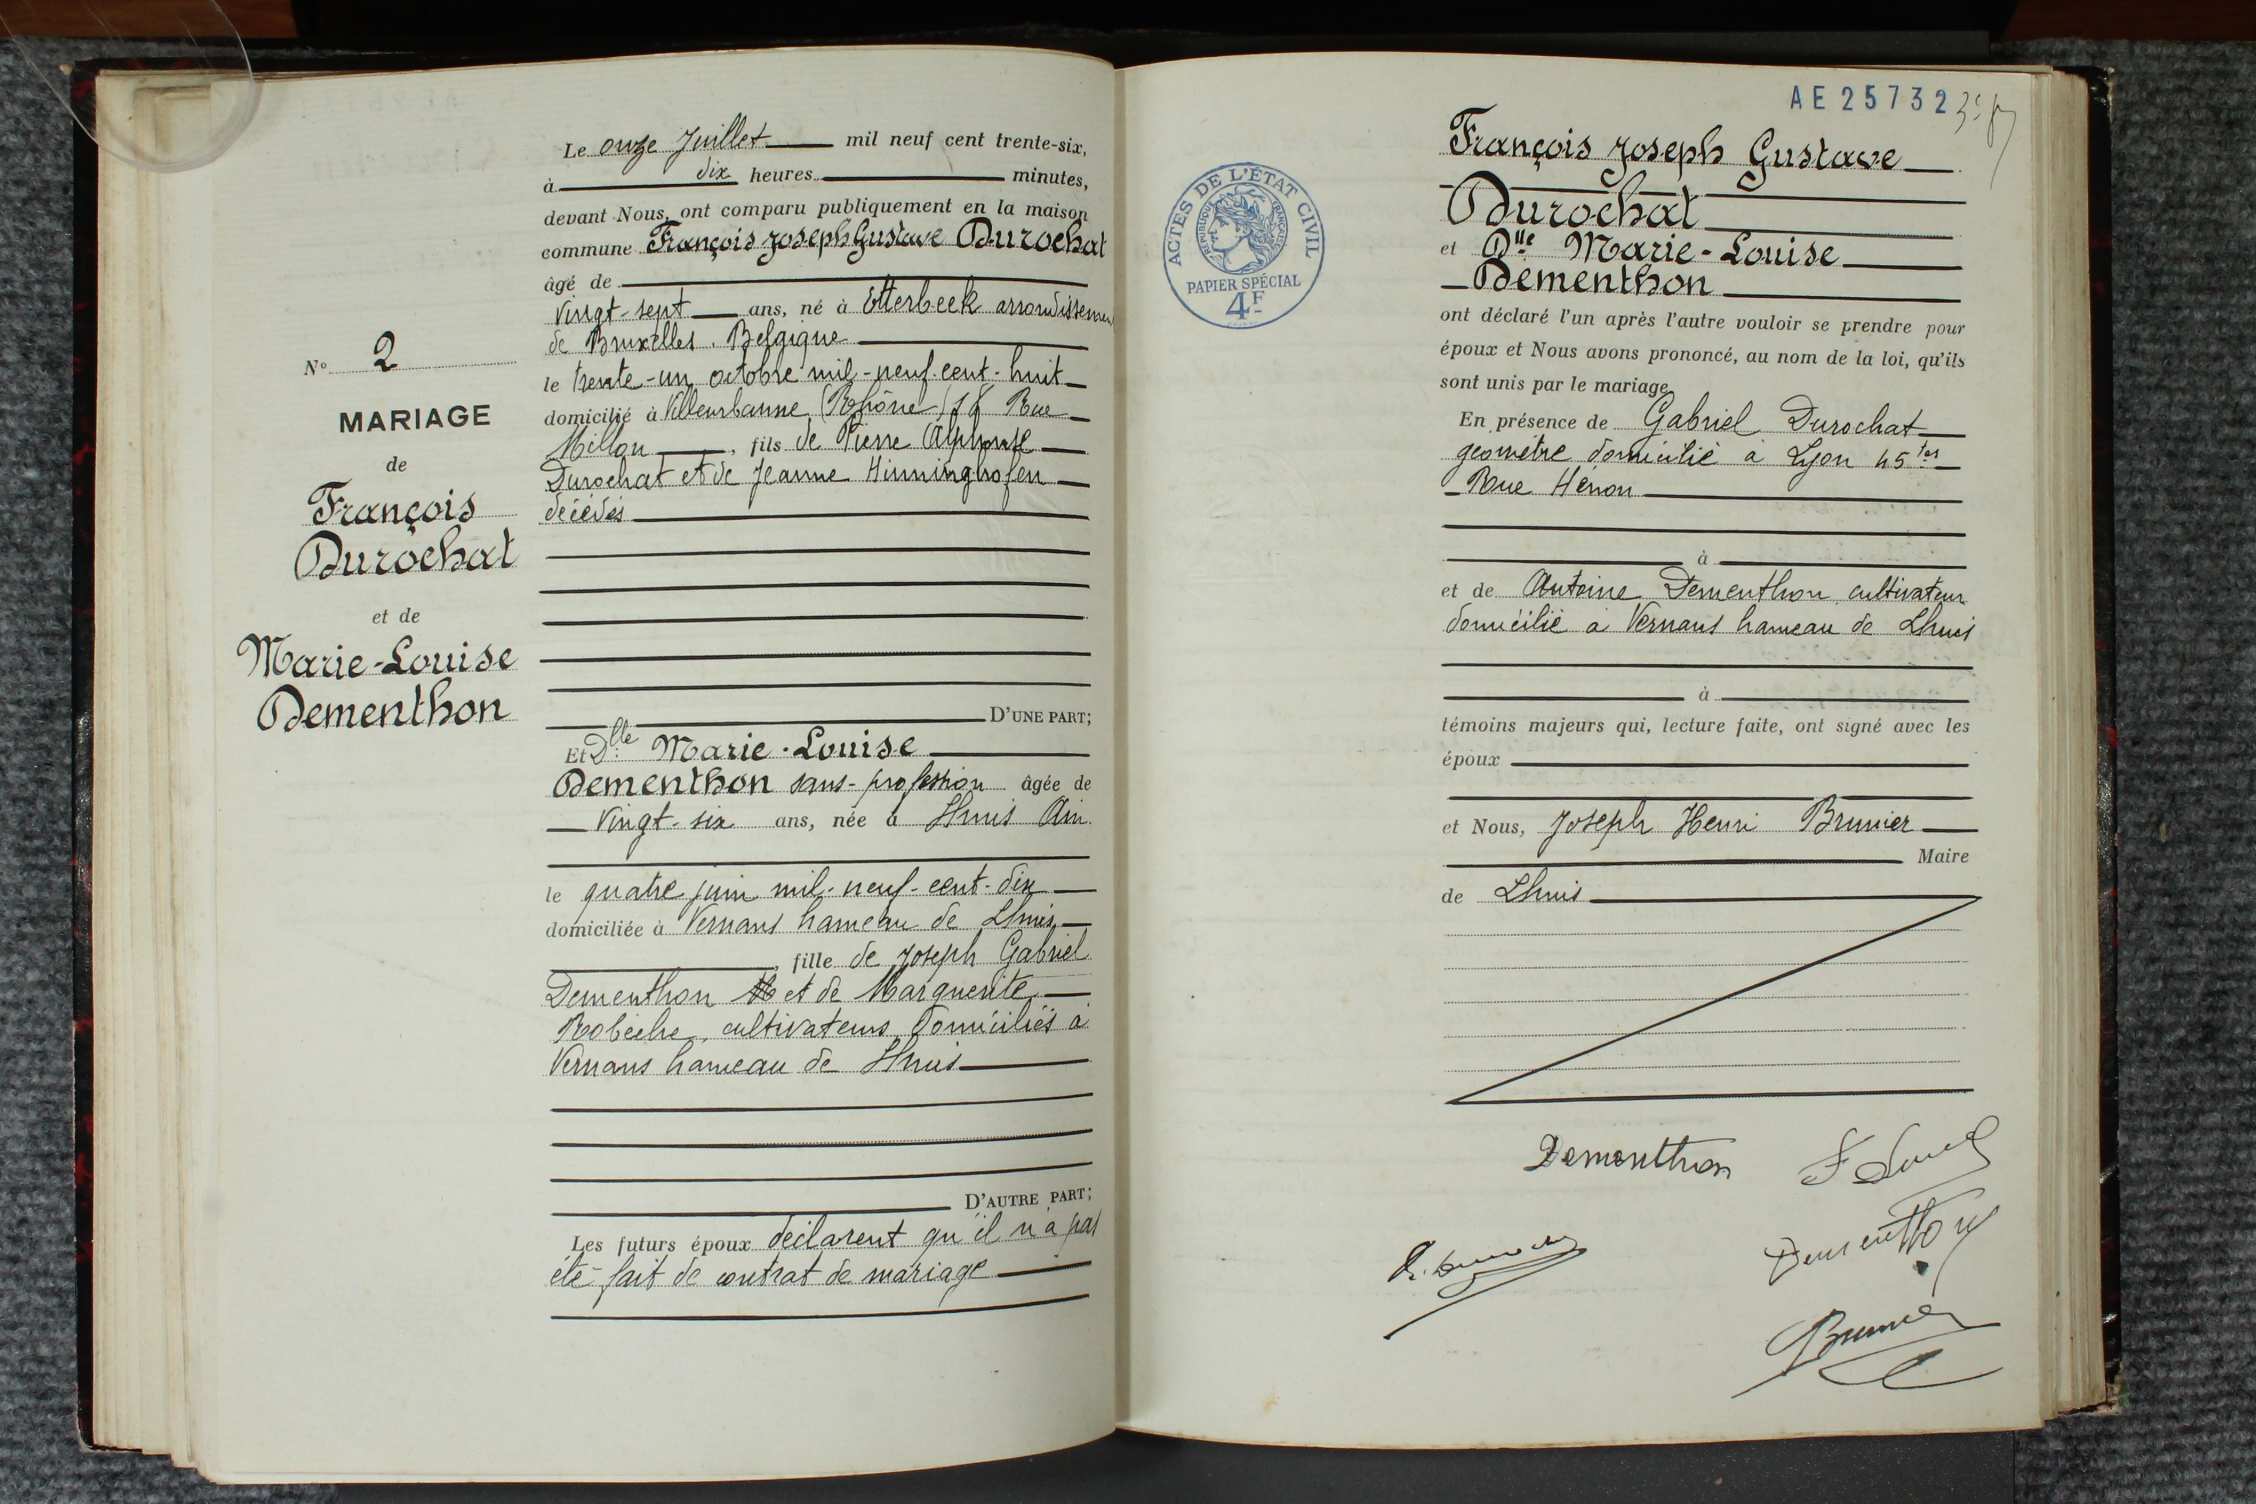 N° 2
MARIAGE
de
François
Durochat
et de
Marie-Louise
Dementhon
Le onze Juillet mil neuf cent trente-six,
à dix heures minutes,
devant Nous, ont comparu publiquement en la maison
commune François Joseph Gustave Durochat
âgé de
vingt-sept ans, né à Etterbeek arrondissement
de Bruxelles. Belgique
le trente-un octobre mil-neuf-cent-huit
domicilié à Villeurbanne (Rhône) Rue
Millon, fils de Pierre Alphonse
Durochat et de Jeanne Hinninghofen
décédés
D'UNE PART;
Et Dlle Marie-Louise
Dementhon sans-profession âgée de
Vingt-six ans, née à Lhuis Ain
le quatre juin mil-neuf-cent-dix
domiciliée à Vernans hameau de Lhuis
fille de Joseph Gabriel
Dementhon et de Marguerite
cultivateurs domiciliés à
Vernans hameau de Lhuis
D'AUTRE PART;
Les futurs époux déclarent qu'il n'a pas
été fait de contrat de mariage
AE25732
ACTES DE L'ÉTAT CIVIL
RÉPUBLIQUE FRANÇAISE
PAPIER SPÉCIAL
4F
François Joseph Gustave
Durochat
et Dlle Marie-Louise
Dementhon
ont déclaré l'un après l'autre vouloir se prendre pour
époux et Nous avons prononcé, au nom de la loi, qu'ils
sont unis par le mariage
En présence de Gabriel Durochat
géomètre domicilié à Lyon 45ter
Rue Hénon
à
et de Antoine Dementhon, cultivateur
domicilié à Vernans hameau de Lhuis
à
témoins majeurs qui, lecture faite, ont signé avec les
époux
et Nous, Joseph Henri Brunier
Maire
de Lhuis
Dementhon
Dementhon
Brunier